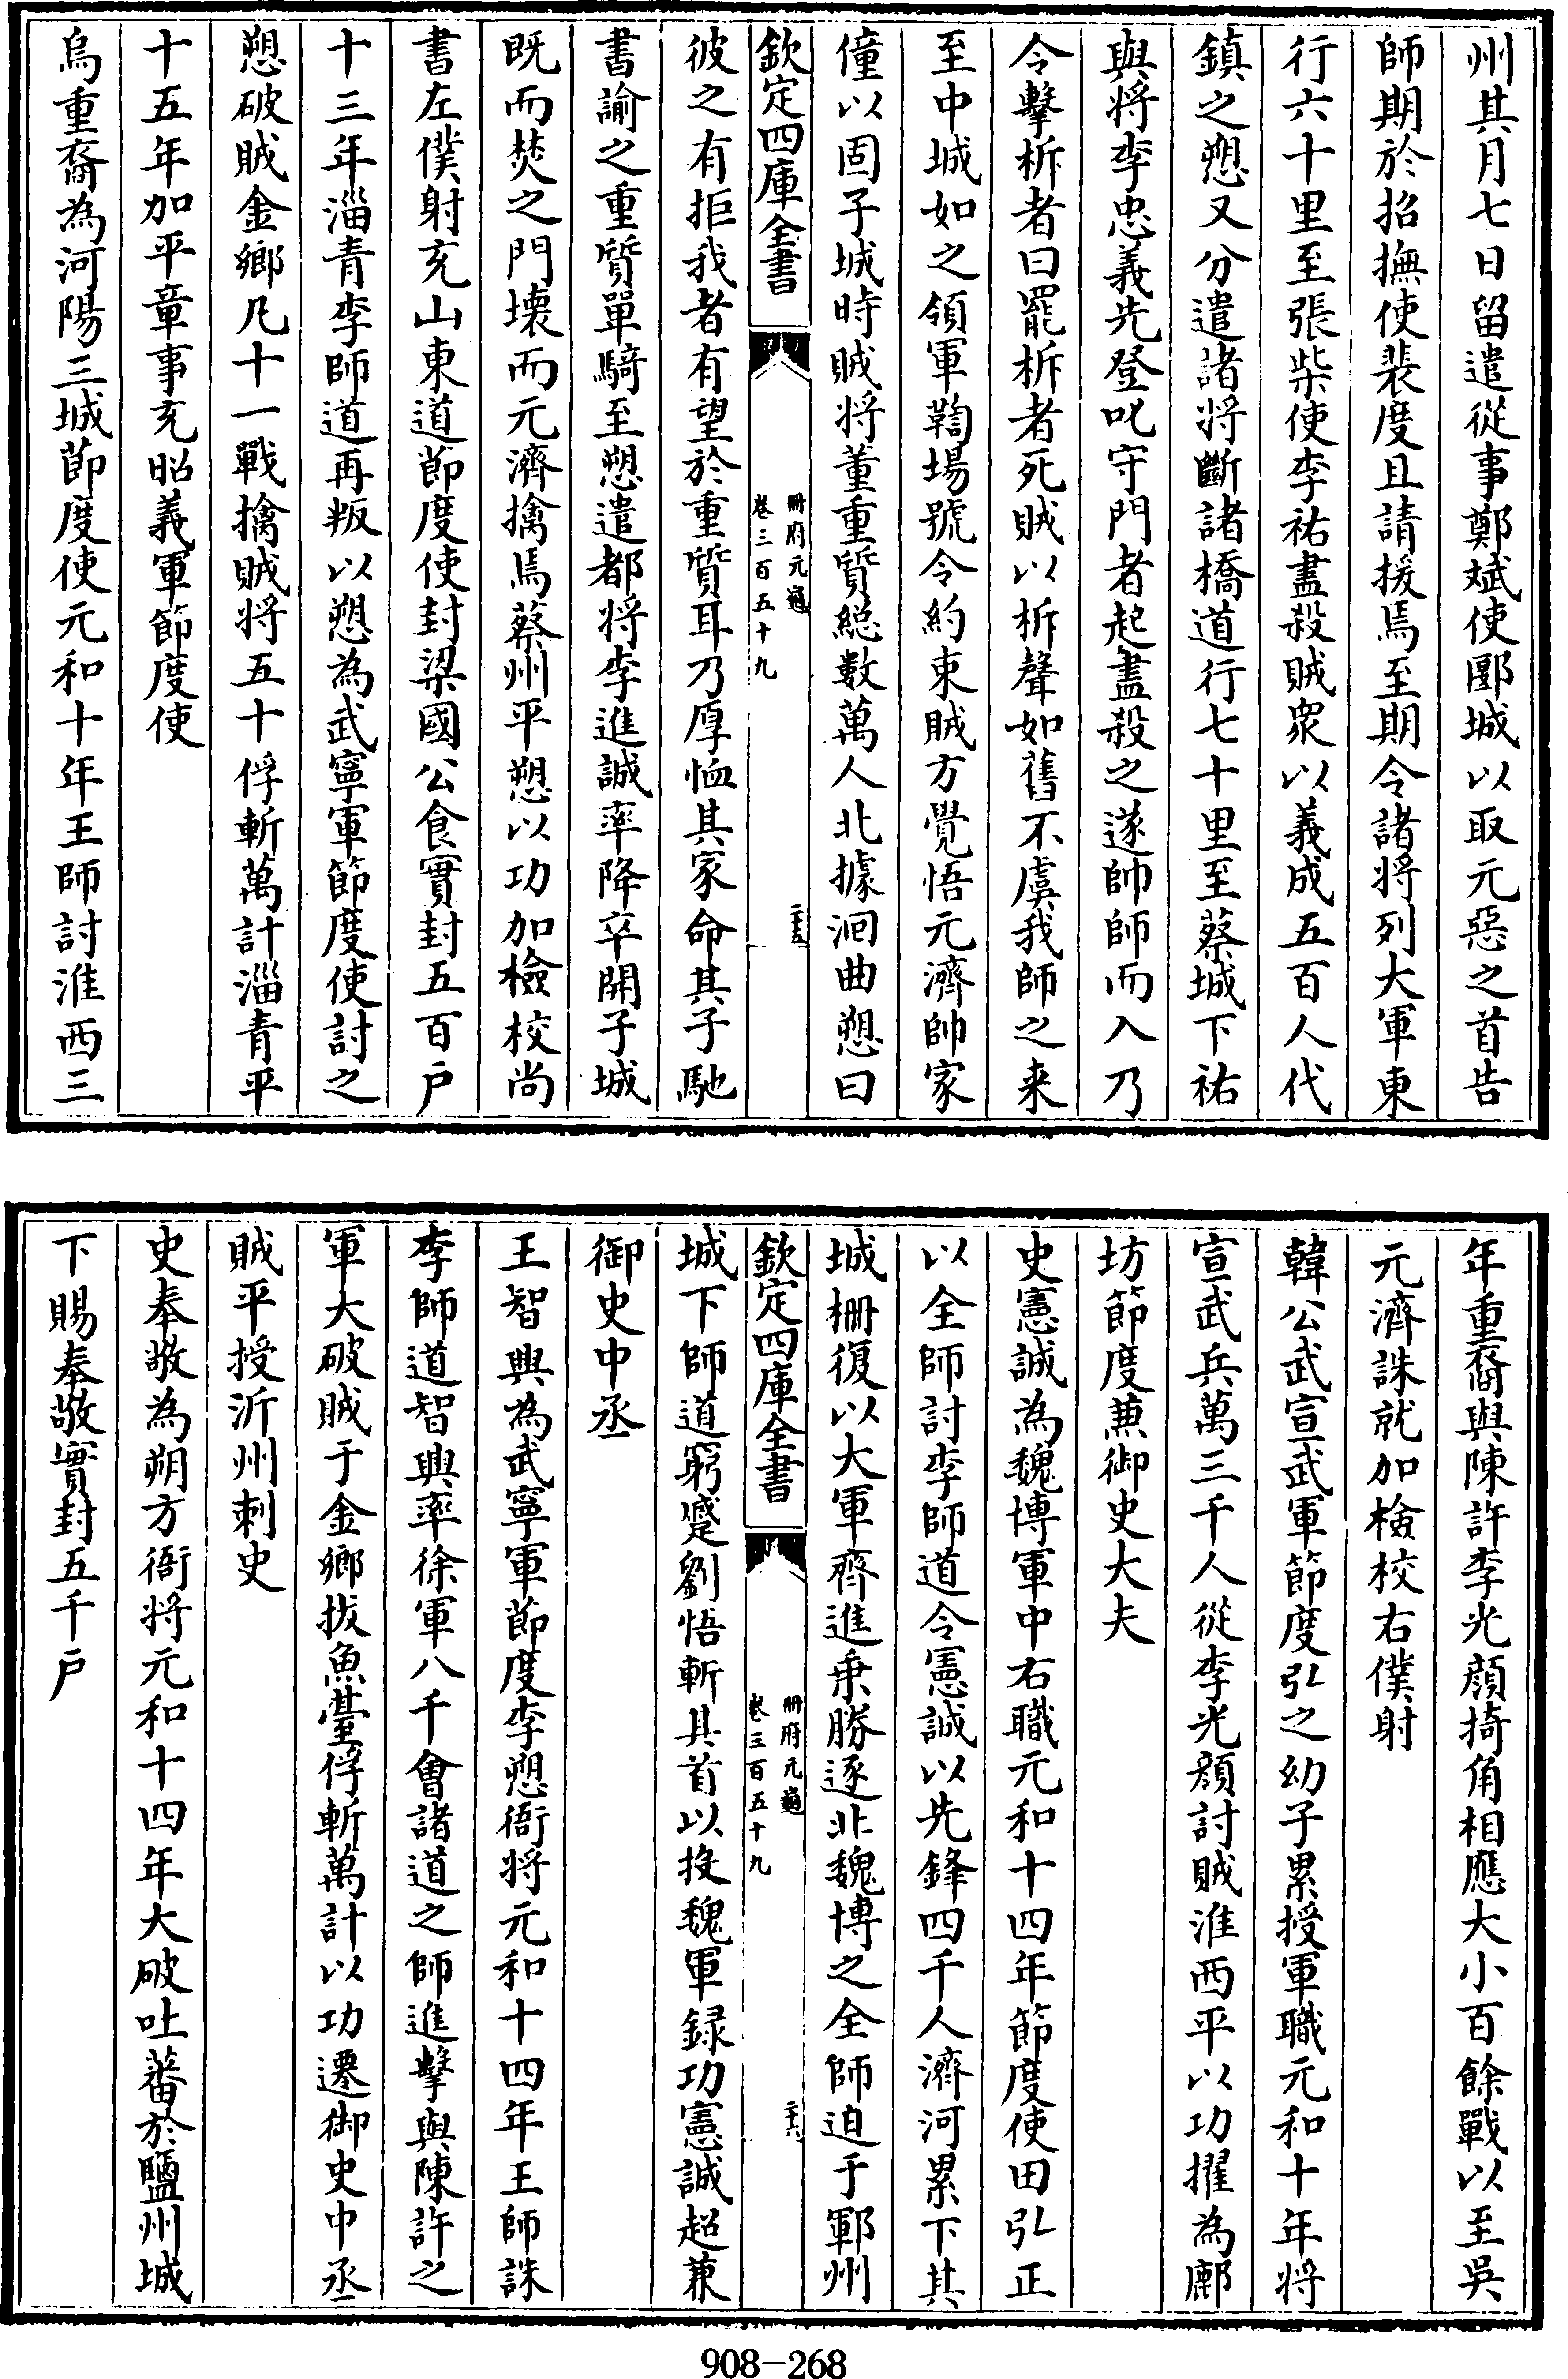 州其月七日留遣從事鄭斌使郾城以取元惡之首告
師期於招撫使裴度且請援焉至期令諸將列大軍東
行六十里至張柴使李祐盡殺賊眾以義成五百人代
鎮之愬又分遣諸將斷諸橋道行七十里至蔡城下祐
與將李忠義先登叱守門者起盡殺之遂帥師而入乃
令擊柝者曰罷柝者死賊以柝聲如舊不虞我師之来
至中城如之領軍鞫場號令約束賊方覺悟元濟帥家
僮以固子城時賊將董重質総數萬人北據洄曲愬曰
欽定四庫全書
冊府元龜
卷三百五十九
二十五
彼之有拒我者有望於重質耳乃厚恤其家命其子馳
書諭之重質單騎至愬遣都將李進誠率降卒開子城
既而焚之門壊而元濟擒焉蔡州平愬以功加檢校尚
書左僕射充山東道節度使封梁國公食實封五百戶
十三年淄青李師道再叛以愬為武寧軍節度使討之
愬破賊金鄉凡十一戰擒賊將五十俘斬萬計淄青平
十五年加平章事充昭義軍節度使
烏重裔為河陽三城節度使元和十年王師討淮西三
年重裔與陳許李光顔掎角相應大小百餘戰以至吳
元濟誅就加檢校右僕射
韓公武宣武軍節度弘之幼子累授軍職元和十年將
宣武兵萬三千人從李光顔討賊淮西平以功擢為鄜
坊節度兼御史大夫
史憲誠為魏博軍中右職元和十四年節度使田弘正
以全師討李師道令憲誠以先鋒四千人濟河累下其
城柵復以大軍齊進乗勝逐北魏博之全師迫于鄆州
欽定四庫全書
冊府元龜
卷三百五十九
二十六
城下師道窮蹙劉悟斬其首以投魏軍録功憲誠超兼
御史中丞
王智興為武寧軍節度李愬衙将元和十四年王師誅
李師道智興率徐軍八千會諸道之師進擊與陳許之
軍大破賊于金鄉拔魚臺俘斬萬計以功遷御史中丞
賊平授沂州刺史
史奉敬為朔方衙将元和十四年大破吐蕃於鹽州城
下賜奉敬實封五千戶
908-268